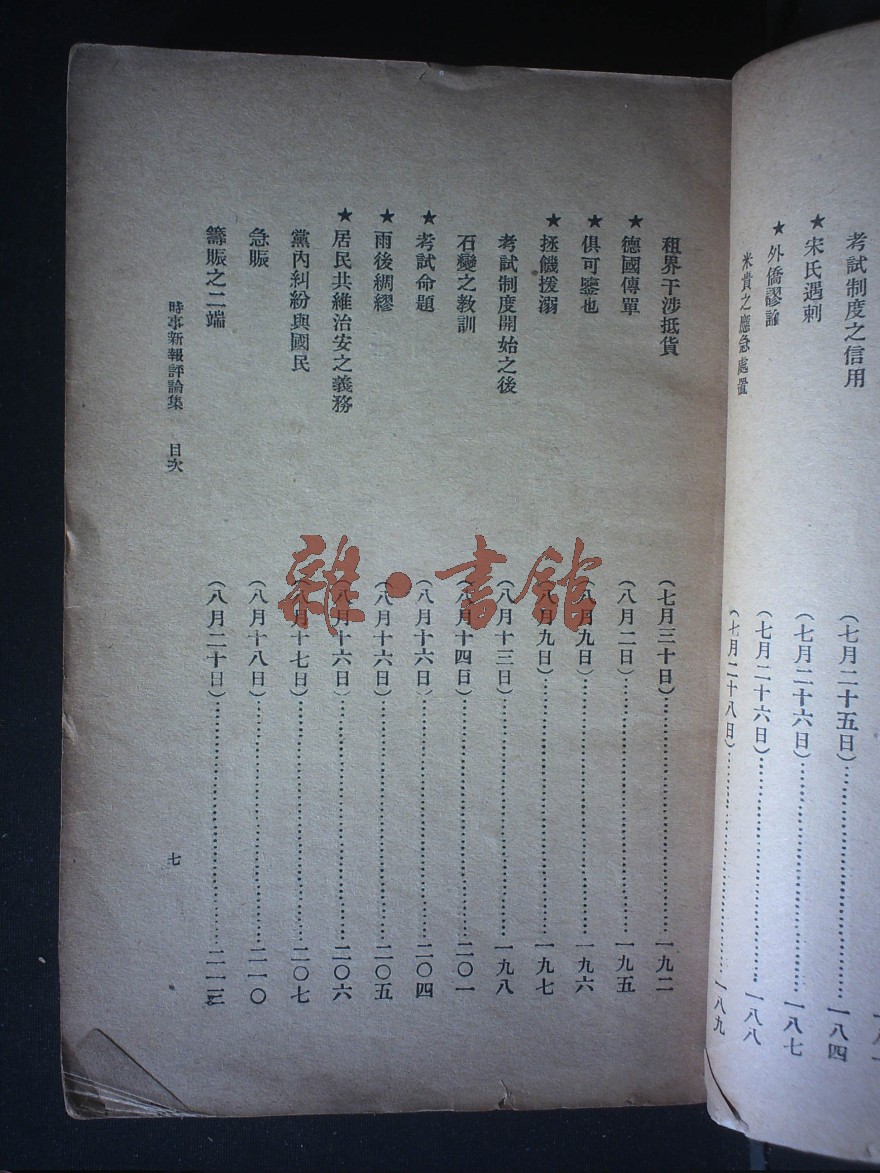 考試制度之信用(七月二十五日)一八四
★宋氏遇刺(七月二十六日)一八七
★外僑謬論(七月二十六日)一八八
米貴之應急處置(七月二十八日)一八九
租界干涉抵貨(七月三十日)一九二
★德國傳單(八月二日)一九五
★俱可鑒也(八月九日)一九六
★拯饑援溺(八月九日)一九七
考試制度開始之後(八月十三日)一九八
石變之教訓(八月十四日)二〇一
★考試命題(八月十六日)二〇四
★雨後綢繆(八月十六日)二〇五
★居民共維治安之義務(八月十六日)二〇六
黨內糾紛與國民(八月十七日)二〇七
急賑(八月十八日)二一〇
籌賑之二端(八月二十日)二一三
時事新報評論集 目次 七
雜·書館